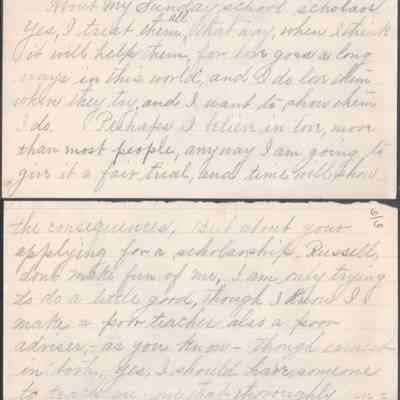 About my Sunday school scholars
Yes, I treat them all that way, when I think
it will help them, for love goes a long
ways in this world, and I do love them
when they try, and I want to show them
I do. Perhaps I believe in love, more
than most people, anyway I am going to
give it a fair trial, and time will show
6/6
the consequences. But about your
applying for a scholarship. Russell,
dont make fun of me, I am only trying
to do a little good, though I know I
make a poor teacher also a poor
adviser, - as you know - though earnest
in both. Yes, I should have someone
to me that thoroughly